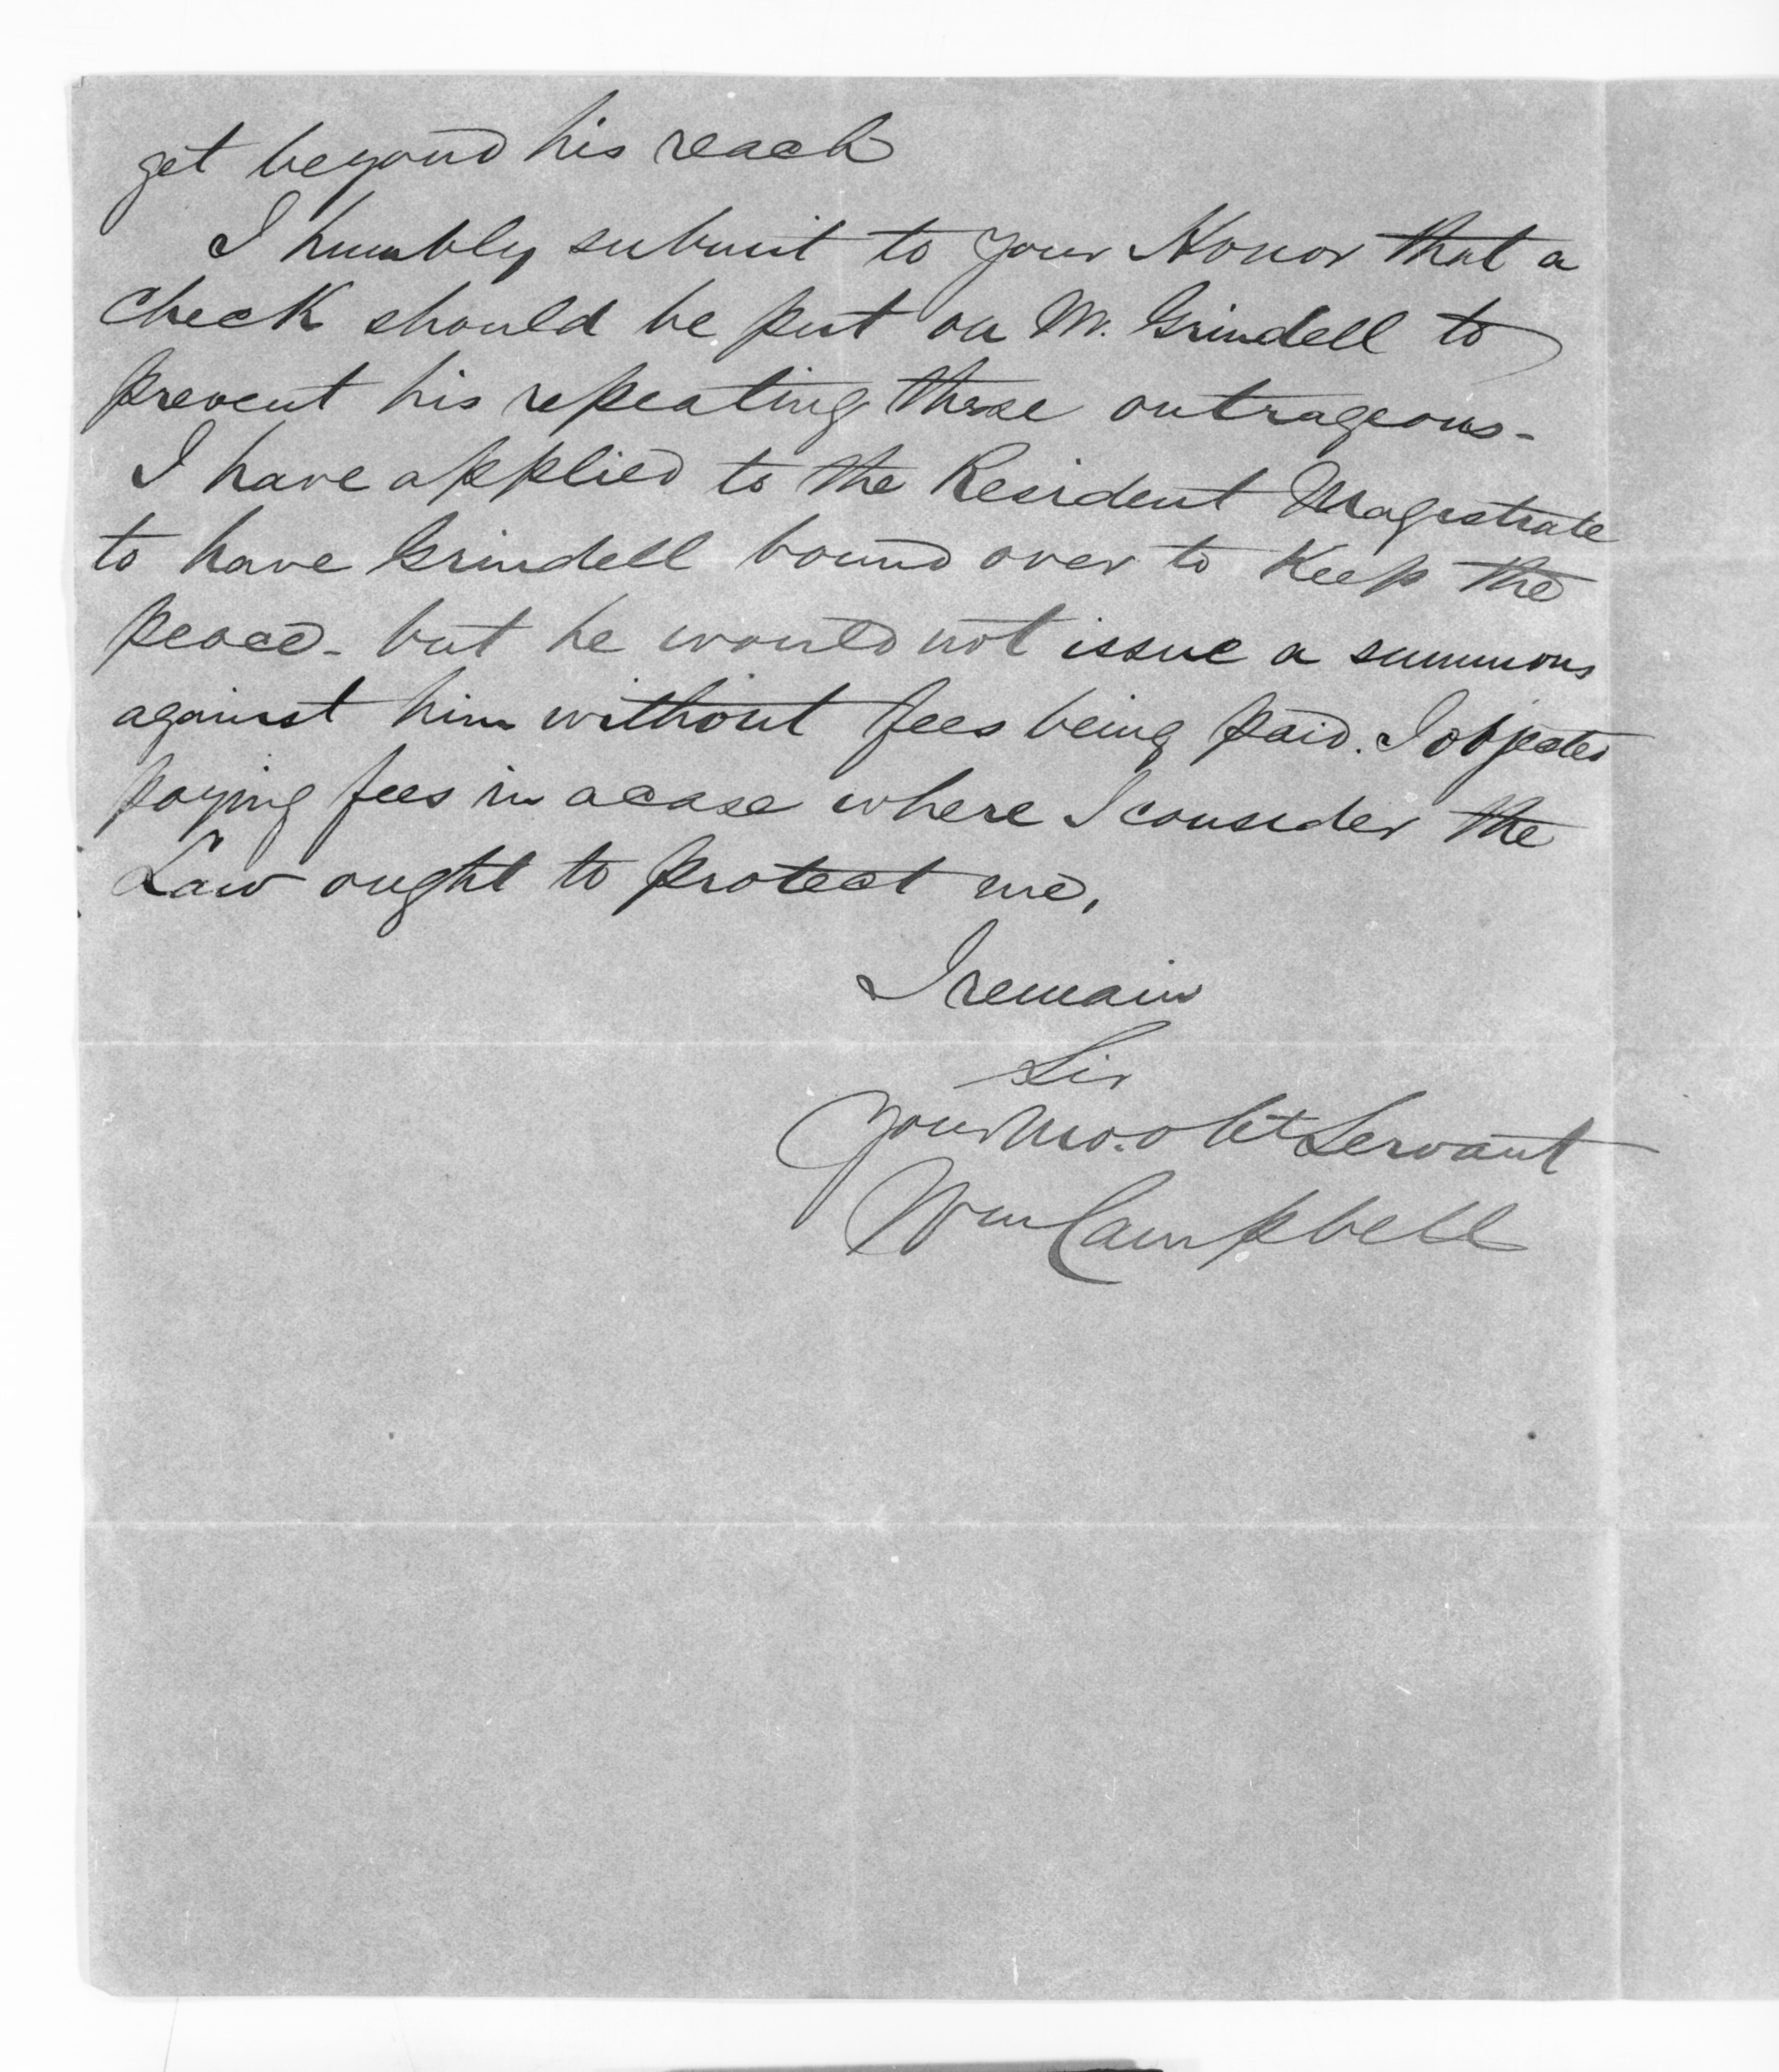 get beyond his reach
I humbly submit to your Honor that a
check should be put on Mr. Grindell to
prevent his repeating these outrageous-
I have applied to the Resident Magistrate
to have Grindell bound over to Keep the
peace - but he would not issue a summons
against him without fees being paid. I objected
paying fees in a case where I consider the
Law ought to protect me,
I remain
Sir
Your Mo. obt Servant
Wm Campbell